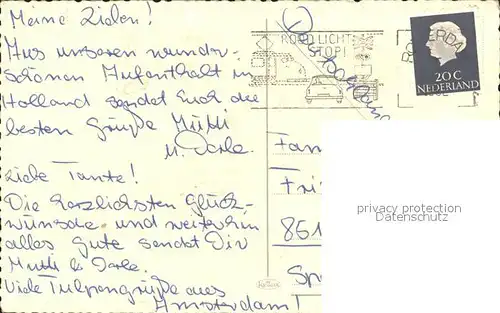 Meine Lieben!
Aus unserem wunder-
schönen Aufenthalt in
Holland sendet Euch die
besten Grüße Mutti
u.
Liebe Tante!
Die herzlichsten Glück-
wünsche und weiterhin
alles Gute sendet Dir
Mutti &
Viele Tulpengrüße aus
Amsterdam!
ROOD LICHT
STOP!
20 C
NEDERLAND
Fam
Fri
851
privacy protection
Datenschutz
Sp